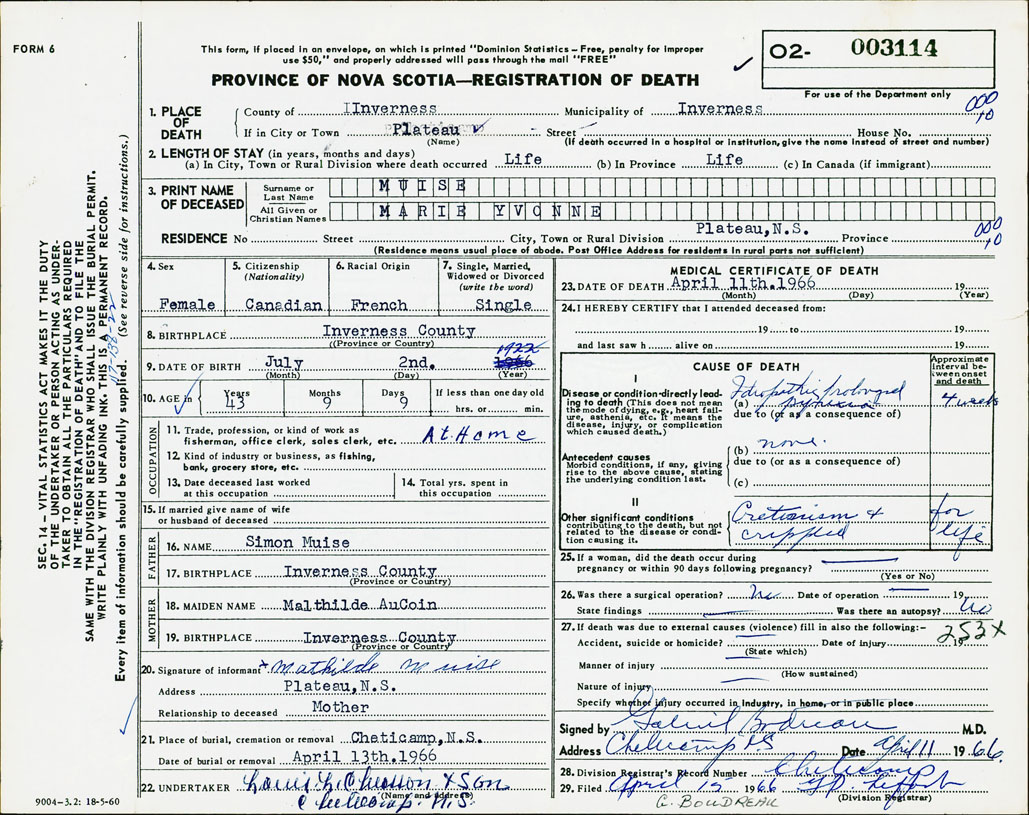 FORM 6
This form, if placed in an envelope, on which is printed "Dominion Statistics – Free, penalty for improper
use $50," and properly addressed will pass through the mail "FREE"
PROVINCE OF NOVA SCOTIA—REGISTRATION OF DEATH
✓
O2- 003114
For use of the Department only
000
10
1. PLACE OF DEATH
County of IInverness Municipality of Inverness
If in City or Town Plateau ✓ - Street House No.
(Name) (If death occurred in a hospital or institution, give the name instead of street and number)
2. LENGTH OF STAY (in years, months and days)
(a) In City, Town or Rural Division where death occurred Life (b) In Province Life (c) In Canada (if immigrant)
3. PRINT NAME OF DECEASED
Surname or Last Name MUISE
All Given or Christian Names MARIE YVONNE
RESIDENCE No Street City, Town or Rural Division Plateau,N.S. Province
000
10
(Residence means usual place of abode. Post Office Address for residents in rural parts not sufficient)
4. Sex Female
5. Citizenship (Nationality) Canadian
6. Racial Origin French
7. Single, Married, Widowed or Divorced (write the word) Single
8. BIRTHPLACE Inverness County
((Province or County)
9. DATE OF BIRTH July 2nd. 1966 1922
(Month) (Day) (Year)
10. AGE in Years 43 Months 9 Days 9 If less than one day old hrs. or min.
OCCUPATION
11. Trade, profession, or kind of work as fisherman, office clerk, sales clerk, etc. At Home
12. Kind of industry or business, as fishing, bank, grocery store, etc.
13. Date deceased last worked at this occupation
14. Total yrs. spent in this occupation
15. If married give name of wife or husband of deceased
FATHER
16. NAME Simon Muise
17. BIRTHPLACE Inverness County
(Province or County)
MOTHER
18. MAIDEN NAME Malthilde AuCoin
19. BIRTHPLACE Inverness County
(Province or County)
20. Signature of informant + Mathilde Muise
Address Plateau,N.S.
Relationship to deceased Mother
21. Place of burial, cremation or removal Cheticamp,N.S.
Date of burial or removal April 13th.1966
22. UNDERTAKER & Son
(Name and address) N.S.
9004-3.2: 18-5-60
MEDICAL CERTIFICATE OF DEATH
23. DATE OF DEATH April 11th.1966 19
(Month) (Day) (Year)
24. I HEREBY CERTIFY that I attended deceased from:
19 to 19
and last saw h alive on 19
CAUSE OF DEATH
Approximate interval between onset and death
I
Disease or condition directly leading to death (This does not mean the mode of dying, e.g., heart failure, asthenia, etc. It means the disease, injury, or complication which caused death.)
(a) Idiopathic prolonged 4 weeks
due to (or as a consequence of)
Antecedent causes
Morbid conditions, if any, giving rise to the above cause, stating the underlying condition last.
(b) none.
due to (or as a consequence of)
(c)
II
Other significant conditions contributing to the death, but not related to the disease or condition causing it.
Cretinism + crippled for life
25. If a woman, did the death occur during pregnancy or within 90 days following pregnancy?
(Yes or No)
26. Was there a surgical operation? No Date of operation 19
State findings Was there an autopsy? No
27. If death was due to external causes (violence) fill in also the following:–
253X
Accident, suicide or homicide? Date of injury 19
(State which)
Manner of injury
(How sustained)
Nature of injury
Specify whether injury occurred in industry, in home, or in public place
Signed by Gabriel Boudreau M.D.
Address Cheticamp NS Date April 11 1966.
28. Division Registrar's Record Number Cheticamp
29. Filed April 1966
(Division Registrar)
G. BOUDREAU
SEC. 14 – VITAL STATISTICS ACT MAKES IT THE DUTY
OF THE UNDERTAKER OR PERSON ACTING AS UNDER-
TAKER TO OBTAIN ALL THE PARTICULARS REQUIRED
IN THE "REGISTRATION OF DEATH" AND TO FILE THE
SAME WITH THE DIVISION REGISTRAR WHO SHALL ISSUE THE BURIAL PERMIT.
WRITE PLAINLY WITH UNFADING INK. THIS IS A PERMANENT RECORD.
Every item of information should be carefully supplied. (See reverse side for instructions.)